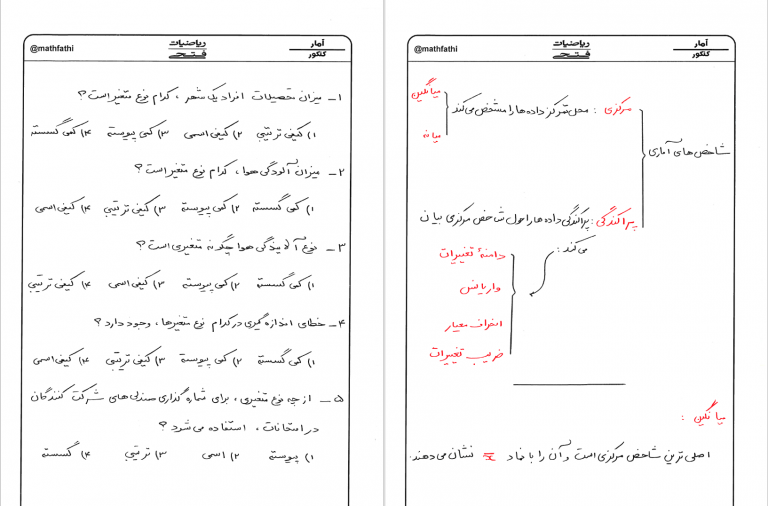 آمار
کنکور
ریاضیات
فتحی
@mathfathi
شاخص های آماری
مرکزی : محل تمرکز داده ها را مشخص می کند
میانگین
میانه
پراکندگی : پراکندگی داده ها را حول شاخص مرکزی بیان
می کند :
دامنهٔ تغییرات
واریانس
انحراف معیار
ضریب تغییرات
میانگین :
اصلی ترین شاخص مرکزی است و آن را با نماد x̄ نشان می دهند.
آمار
کنکور
ریاضیات
فتحی
@mathfathi
۱_ میزان تحصیلات افراد یک شهر ، کدام نوع متغیر است ؟
۱) کیفی ترتیبی ۲) کیفی اسمی ۳) کمی پیوسته ۴) کمی گسسته
۲_ میزان آلودگی هوا ، کدام نوع متغیر است ؟
۱) کمی گسسته ۲) کمی پیوسته ۳) کیفی ترتیبی ۴) کیفی اسمی
۳_ نوع آلایندگی هوا چگونه متغیری است ؟
۱) کمی گسسته ۲) کمی پیوسته ۳) کیفی اسمی ۴) کیفی ترتیبی
۴_ خطای اندازه گیری در کدام نوع متغیرها ، وجود دارد ؟
۱) کمی گسسته ۲) کمی پیوسته ۳) کیفی ترتیبی ۴) کیفی اسمی
۵_ از چه نوع متغیری ، برای شماره گذاری صندلی های شرکت کنندگان
در امتحانات ، استفاده می شود ؟
۱) پیوسته ۲) اسمی ۳) ترتیبی ۴) گسسته